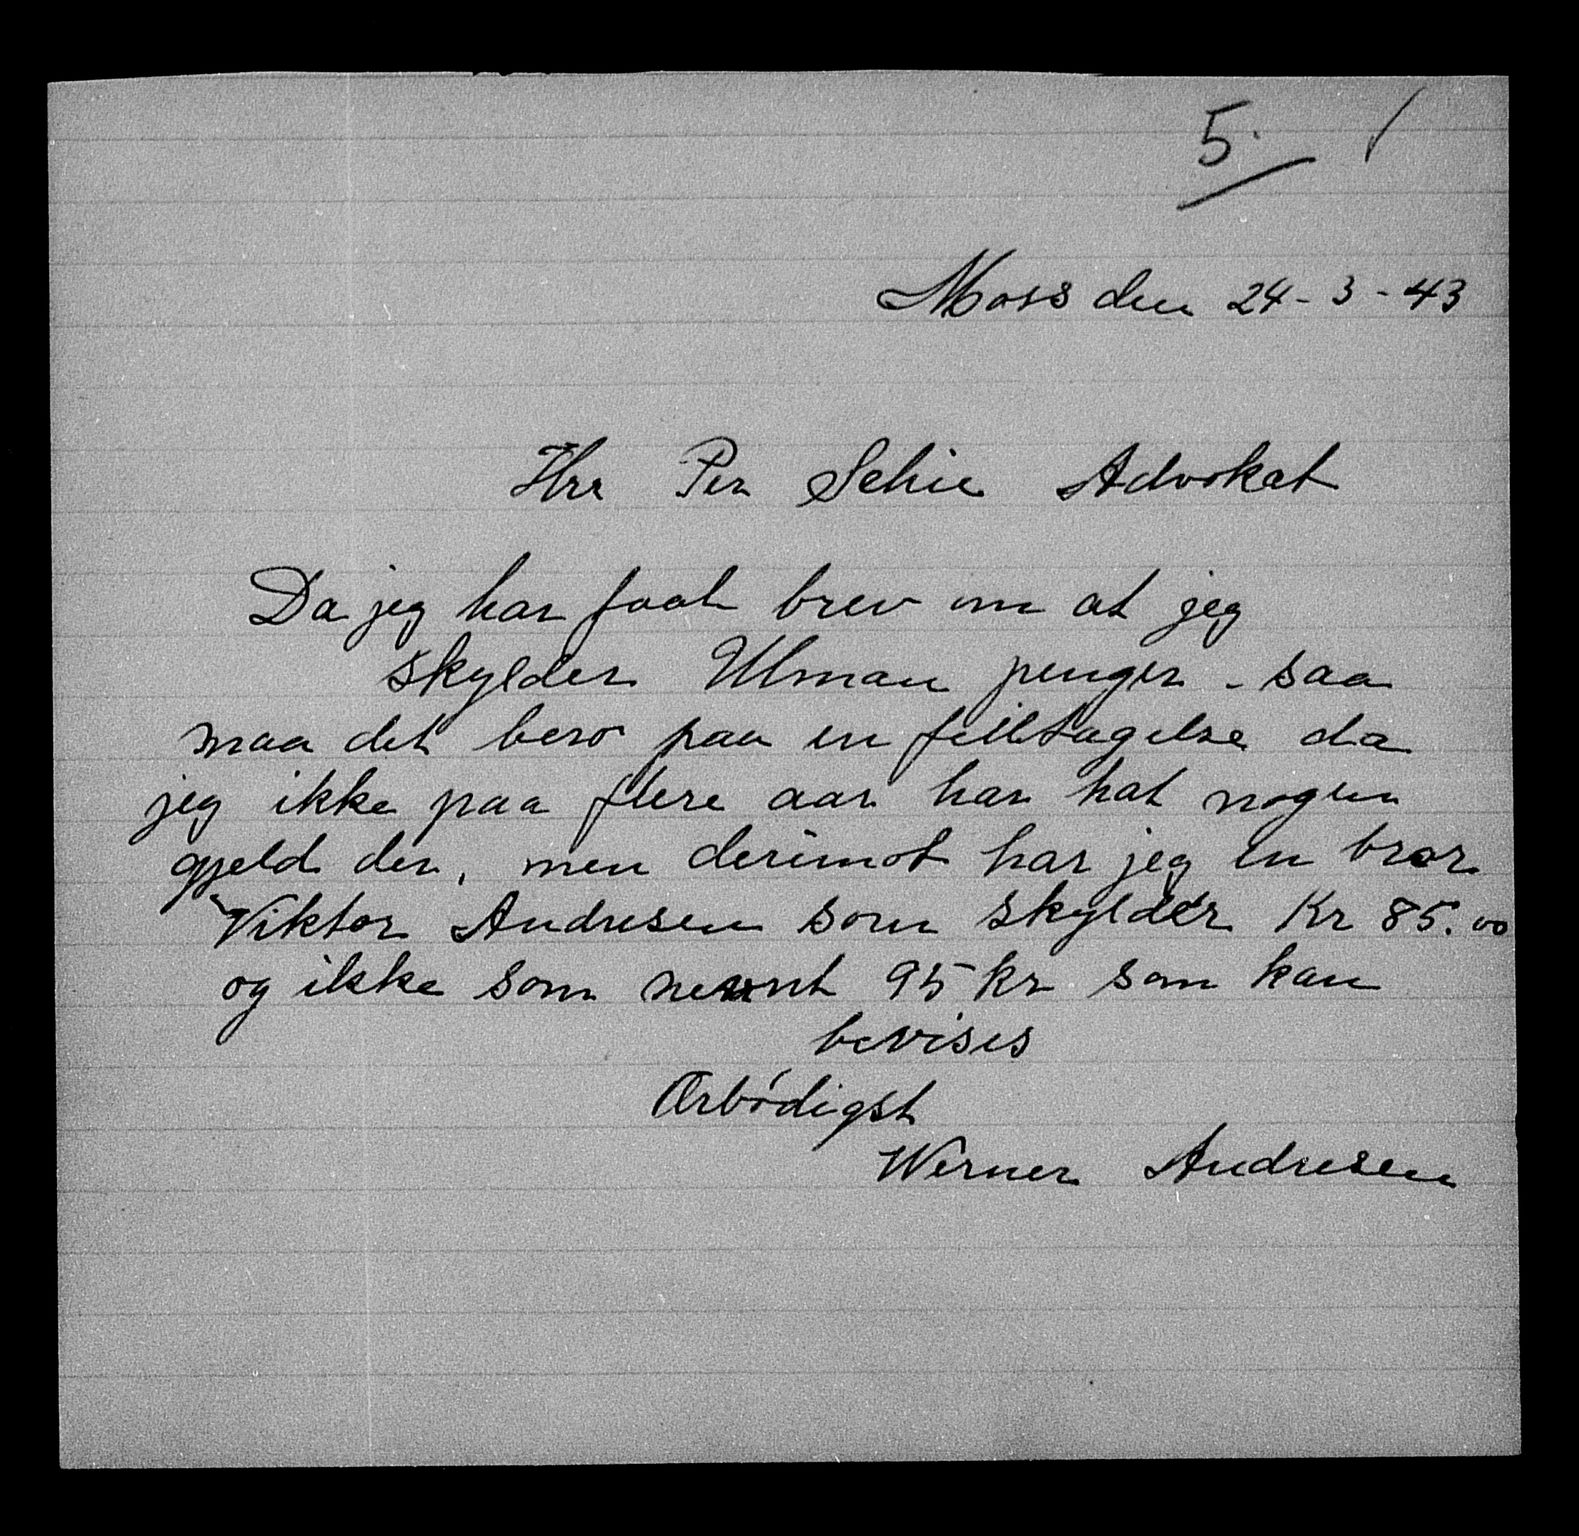 5.
Moss den 24-3-43
Hrr Per Schie Advokat
Da jeg har faat brev om at jeg
skylder Ulman penger - saa
maa det bero paa en feiltagelse da
jeg ikke paa flere aar har hat nogen
gjeld der, men derimot har jeg en bror
Viktor Andresen som skylder Kr 85.00
og ikke som nevnt 95 kr som kan
bevises
Ærbødigst
Werner Andresen